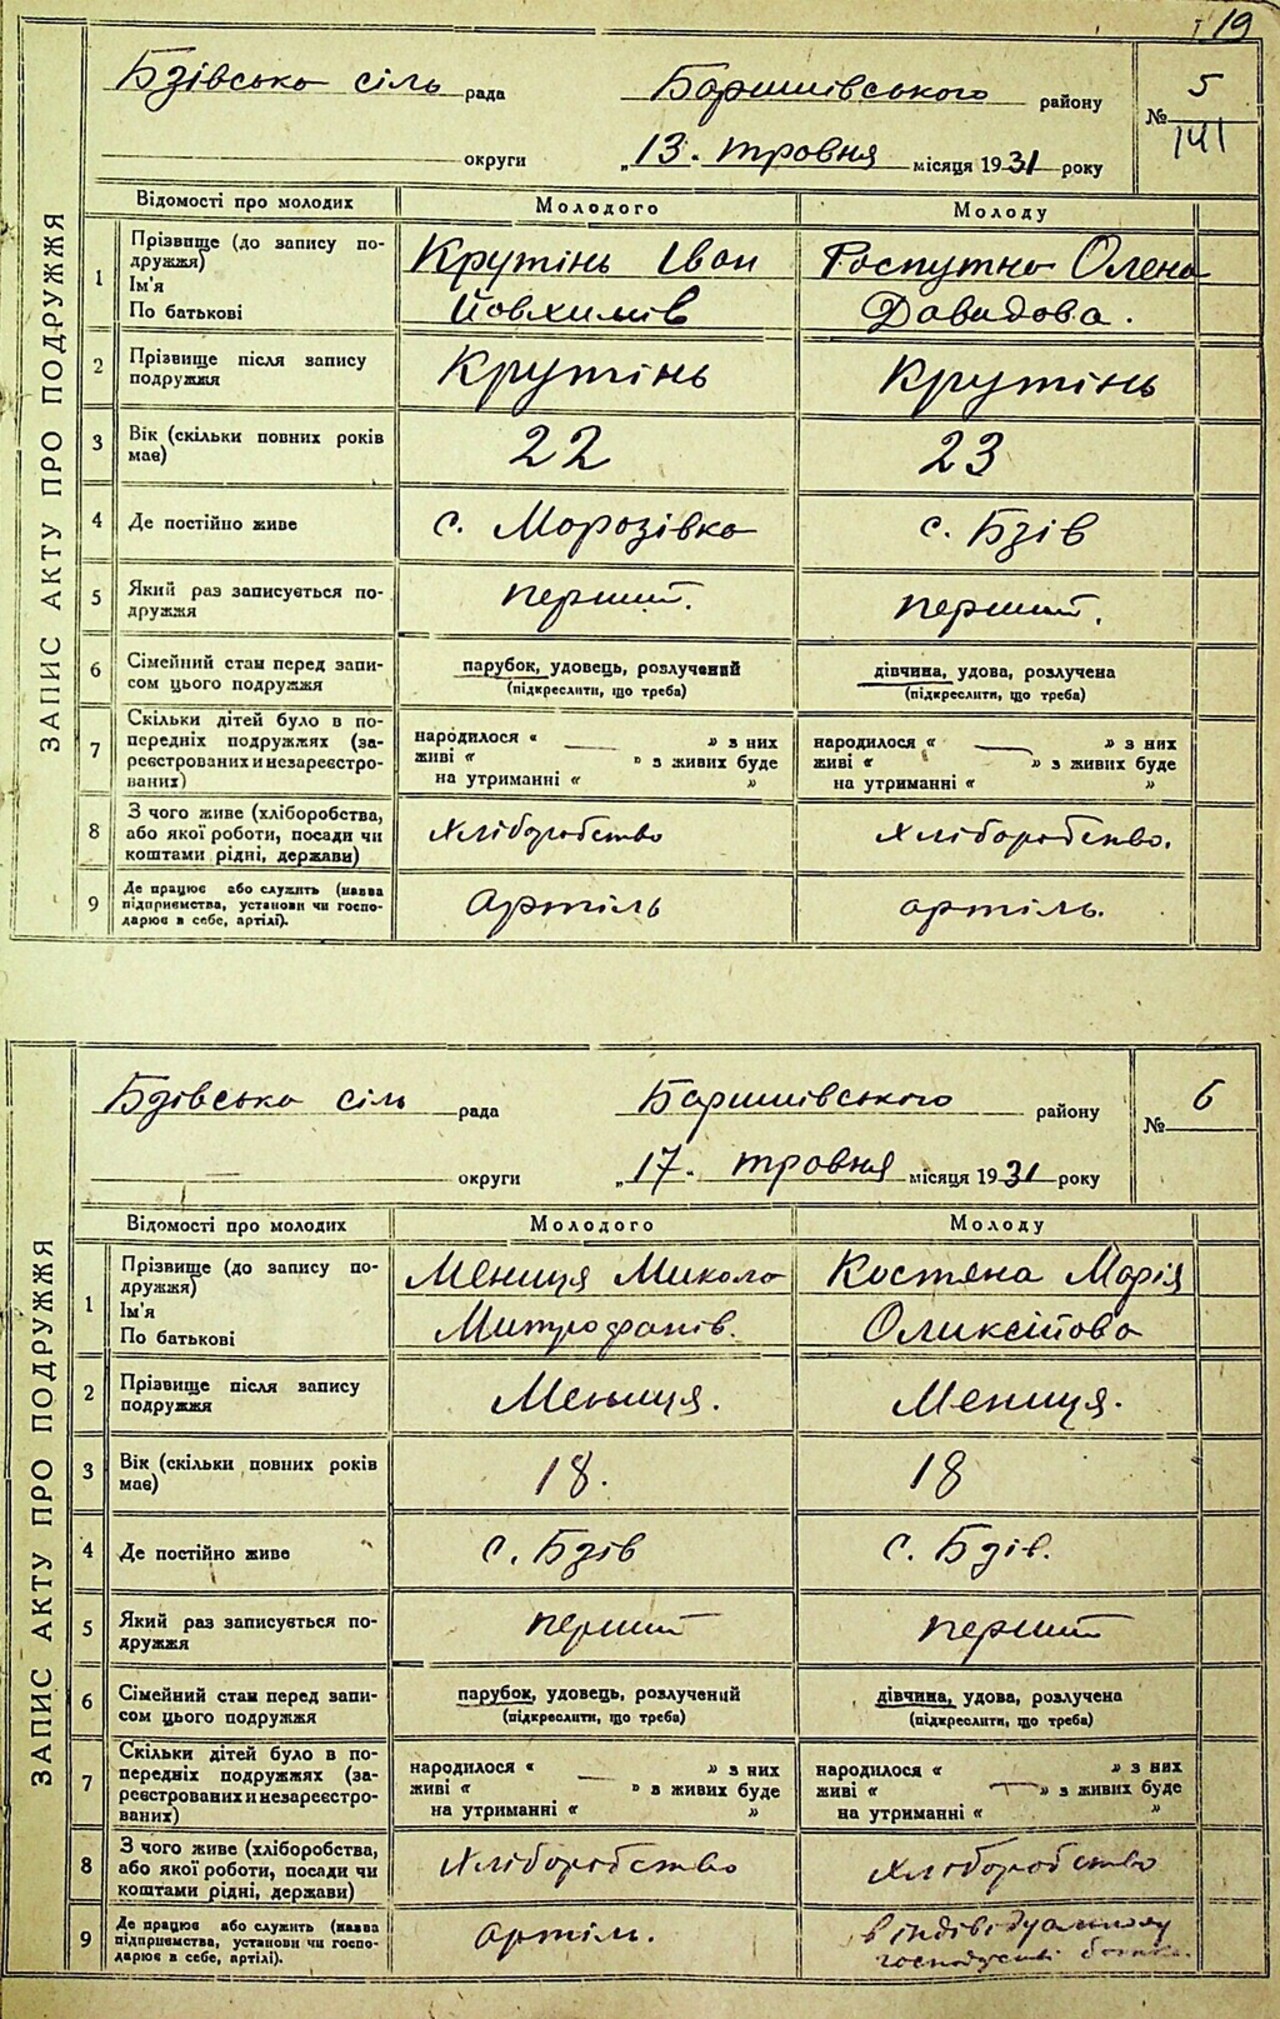 19
Бзівська сіль рада Баришівського району № 5
141
округи „13. травня місяця 1931 року
ЗАПИС АКТУ ПРО ПОДРУЖЖЯ
Відомості про молодих Молодого Молоду
1 Прізвище (до запису по-
дружжя)
Ім'я
По батькові
Крутінь Іван
Йовхимів
Распутна Олена
Давидова.
2 Прізвище після запису
подружжя
Крутінь Крутінь
3 Вік (скільки повних років
має)
22 23
4 Де постійно живе с. Морозівка с. Бзів
5 Який раз записується по-
дружжя
перший. перший.
6 Сімейний стан перед запи-
сом цього подружжя
парубок, удовець, розлучений
(підкреслити, що треба)
дівчина, удова, розлучена
(підкреслити, що треба)
7 Скільки дітей було в по-
передніх подружжях (за-
реєстрованих и незареєстро-
ваних)
народилося « — » з них
живі « » з живих буде
на утриманні « »
народилося « — » з них
живі « » з живих буде
на утриманні « »
8 З чого живе (хліборобства,
або якої роботи, посади чи
коштами рідні, держави)
Хліборобство Хліборобство.
9 Де працює або служить (назва
підприємства, установи чи госпо-
дарює в себе, артілі).
артіль артіль.
Бзівська сіль рада Баришівського району № 6
округи „17. травня місяця 1931 року
ЗАПИС АКТУ ПРО ПОДРУЖЖЯ
Відомості про молодих Молодого Молоду
1 Прізвище (до запису по-
дружжя)
Ім'я
По батькові
Мениця Микола
Митрофанів.
Костяна Марія
Оликсійова
2 Прізвище після запису
подружжя
Мениця. Мениця.
3 Вік (скільки повних років
має)
18. 18
4 Де постійно живе с. Бзів с. Бзів.
5 Який раз записується по-
дружжя
перший перший
6 Сімейний стан перед запи-
сом цього подружжя
парубок, удовець, розлучений
(підкреслити, що треба)
дівчина, удова, розлучена
(підкреслити, що треба)
7 Скільки дітей було в по-
передніх подружжях (за-
реєстрованих и незареєстро-
ваних)
народилося « — » з них
живі « » з живих буде
на утриманні « »
народилося « » з них
живі « — » з живих буде
на утриманні « »
8 З чого живе (хліборобства,
або якої роботи, посади чи
коштами рідні, держави)
Хліборобство Хліборобство
9 Де працює або служить (назва
підприємства, установи чи госпо-
дарює в себе, артілі).
артіль. в індівідуальному
батька.